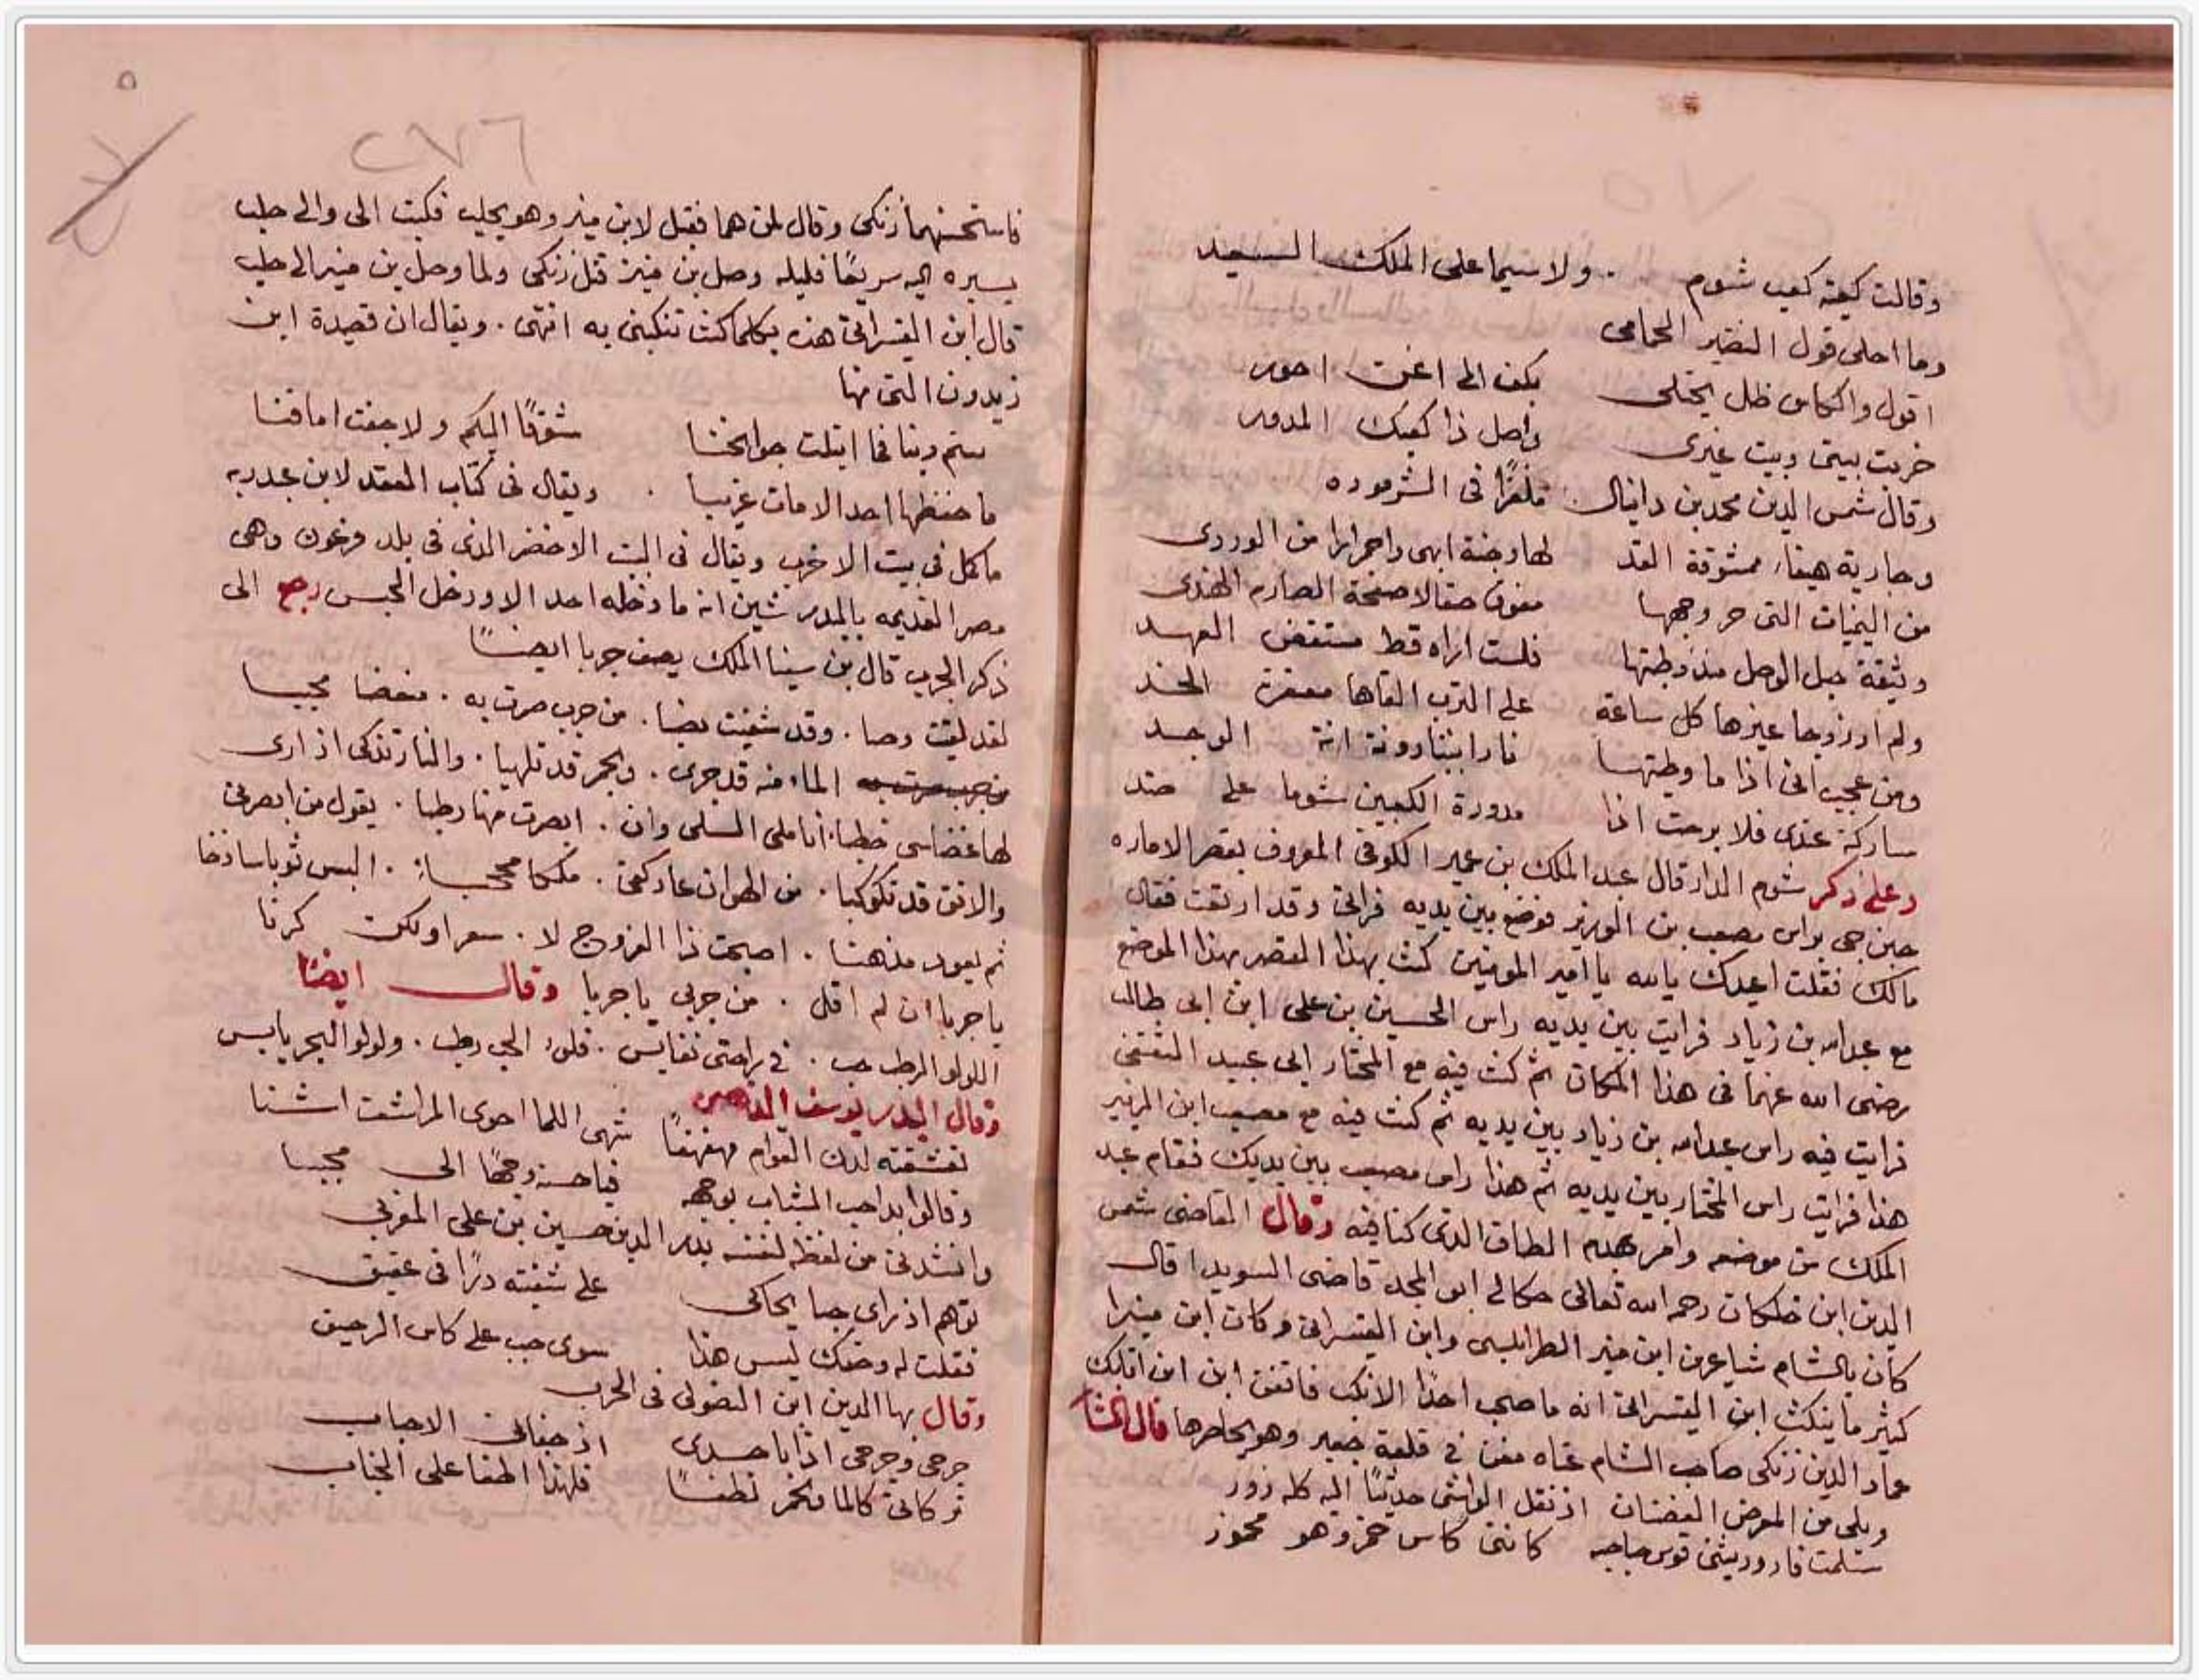 وقالت كعبة كعب شوم . ولا سيما على الملك السعيد
وما احلى قول النصير الحمامى
اقول والكاس ظل يجتلى بكف الى اغن احور
خربت بيتى وبيت غيرى واصل ذا كعبك المدور
وقال شمس الدين محمد بن دانيال ملغزا فى الشرموده
وجارية هيفاء ممشوقة القد لها وجنة ابهى واحمرارا من الوردى
من اليمنيات التى حر وجهها يفوق صقالا صفحة الصارم الهندى
وثيقة حبل الوصل منذ وطئتها فلست اراه قط منتقض العهد
ولم ار زوجا غيرها كل ساعة على الترب القاها معفرة الخد
ومن عجب انى اذا ما وطيتها انة الوجد
مباركة عندى فلا برحت اذا مدورة الكعبين شوما على ضد
وعلى ذكر شوم الدار قال عبد الملك بن عمير الكوفى المعروف بقصر الاماره
حين جى براس مصعب بن الزبير فوضع بين يديه فرانى وقد ارتعت فقال
مالك فقلت اعيدك بالله يا امير المومنين كنت بهذا القصر بهذا الموضع
مع عبد الله بن زياد فرايت بين يديه راس الحسين بن على ابن ابى طالب
رضى الله عنهما فى هذا المكان ثم كنت فيه مع المختار ابى عبيد الثقفى
فرايت فيه راس عبد الله بن زياد بين يديه ثم كنت فيه مع مصعب ابن الزبير
هذا فرايت راس المختار بين يديه ثم هذا راس مصعب بين يديك فقام عبد
الملك من موضعه وامر بهدم الطاق الذى كنا فيه وقال القاضى شمس
الدين ابن خلكان رحمه الله تعالى حكالى ابو المجد قاضى السويدا قال
كان بالشام شاعرين ابن منير الطرابلسى وابن القيسرانى وكان ابن منيرا
كثير ما ينكث ابن القيسرانى انه ما صحب احدا الا نكب فاتفق ابن ابن اتابك
عماد الدين زنكى صاحب الشام غناه مغن فى قلعة جعبر وهو يحاصرها قال
ويلى من المعرض الغضبان اذ نقل الواشى حديثا اليه كله زور
سلمت فازور يثنى قوس حاجبه كاننى كاس خمر وهو مخمور
٥
٢٧٦
فاستحسنهما زنكى وقال لمن هما فقيل لابن منير وهو بحلب فكتب الى والى حلب
يسيره اليه سريعا فليله وصل بن منير قتل زنكى ولما وصل بن منير الى حلب
قال ابن القيسرانى هذه بكلما كنت تنكبنى به انتهى . ويقال ان قصيدة ابن
زيدون التى منها
بنتم وبنا فما ابتلت جوانحنا شوقا اليكم ولا جفت اماقنا
ما حفظها احد الا مات غريبا . ويقال فى كتاب العقد لابن عبد ربه
ما كمل فى بيت الا خرب ويقال فى البت الاخضر الذى فى بلد فرعون وهى
مصر القديمه بالبدرشين انه ما دخله احد الا ودخل الحبس رجع الى
ذكر الجرب قال بن سينا الملك يصف جربا ايضا
لقد لقيت وصبا . وقد شفيت نصبا . من جرب صرت به . مبغضا مجببا
من جرب صرت به الماء منه قد جرى . والجمر قد تلهبا . والنار تذكى اذ ارى
لها عضاى حطبا . انا ملى السلى وان . ابصرت منها رطبا . يقول من ابصرنى
والافق قد تكوكبا . من الهوان عاد كفى . ملكا محجبا . البس ثوبا ساذجا
ثم يعود مذهبا . اصبحت ذا المزوج لا . سعرا ولكن كربا
يا جربا ان لم اقل . من جربى يا حربا وقال ايضا
اللولو الرطب حب . فى راحتى نفايس . فلولو الحب رطب . ولولو البحر يابس
وقال البدر يوسف
تعشقته لدن القوام مهفهفا شهى اللما احوى المراشف اشنبا
وقالوا بدا حب الشباب بوجهه فيا حسنه وجها الى محببا
وانشدنى من لفظه لنفسه بدر الدين حسين بن على المغربى
توهم اذ راى حبا يحاكى على شفته درا فى عقيق
فقلت له وحقك ليس هذا . سوى حبب على كاس الرحيق
وقال بها الدين ابن فى الجرب
جرحى وجرحى اذابا جسدى اذ جفانى الاحباب
فلهذا اطفا على الجناب